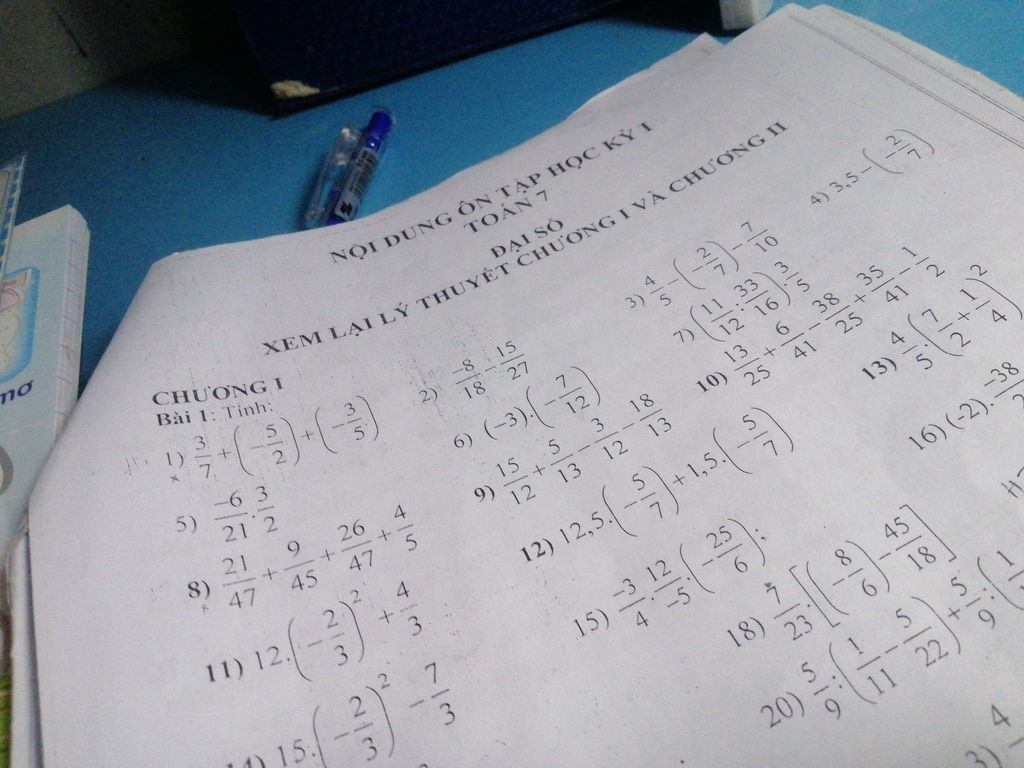 NỘI DUNG ÔN TẬP HỌC KỲ I
TOÁN 7
ĐẠI SỐ
XEM LẠI LÝ THUYẾT CHƯƠNG I VÀ CHƯƠNG II
CHƯƠNG I
Bài 1: Tính:
1) 3/7 + (-5/2) + (-3/5) 2) -8/18 - 15/27 3) 4/5 - (-2/7) - 7/10 4) 3,5 - (-2/7)
5) -6/21 . 3/2 6) (-3).(-7/12) 7) (11/12 : 33/16) . 3/5
8) 21/47 + 9/45 + 26/47 + 4/5 9) 15/12 + 5/13 - 3/12 - 18/13 10) 13/25 + 6/41 - 38/25 + 35/41 - 1/2
11) 12.(-2/3)² + 4/3 12) 12,5.(-5/7) + 1,5.(-5/7) 13) 4/5.(7/2 + 1/4)²
14) 15.(-2/3)² - 7/3 15) -3/4 . 12/-5 . (-25/6); 16) (-2). -38/
18) 7/23 . [(-8/6) - 45/18]
20) 5/9 : (1/11 - 5/22) + 5/9 : (1/
mơ